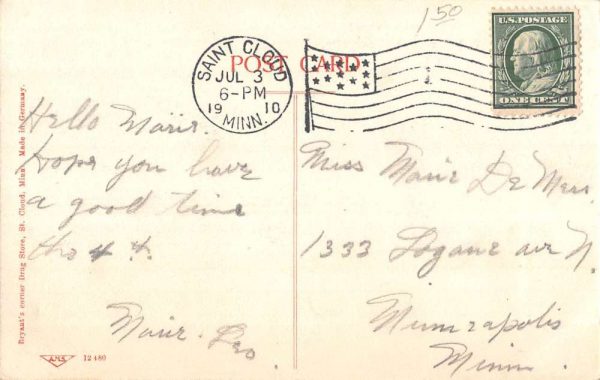 1 50
U.S. POSTAGE
ONE CENT
POST CARD
SAINT CLOUD
JUL 3
6-PM
19 10
MINN.
Hello Marie.
Hope you have
a good time
the 4th.
Marie.
Miss Marie De Mers.
1333 Logan ave N.
Minneapolis
Minn.
Bryant's corner Drug Store, St. Cloud, Minn. Made in Germany.
12480